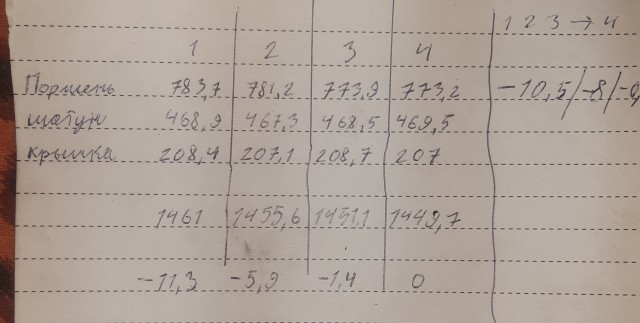 1 2 3 → 4
1 2 3 4
Поршень 783,7 781,2 773,9 773,2 -10,5/-8/-0,
шатун 468,9 467,3 468,5 469,5
крышка 208,4 207,1 208,7 207
1461 1455,6 1451,1 1449,7
-11,3 -5,9 -1,4 0